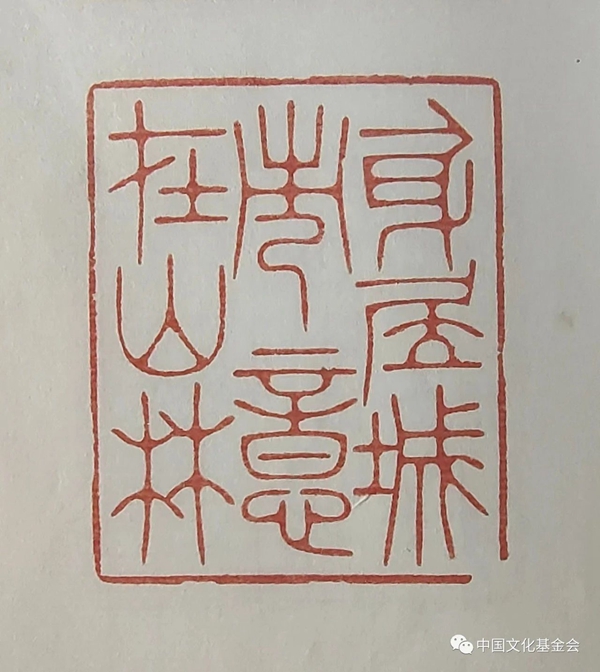 身居城
市意
在山林
中国文化基金会